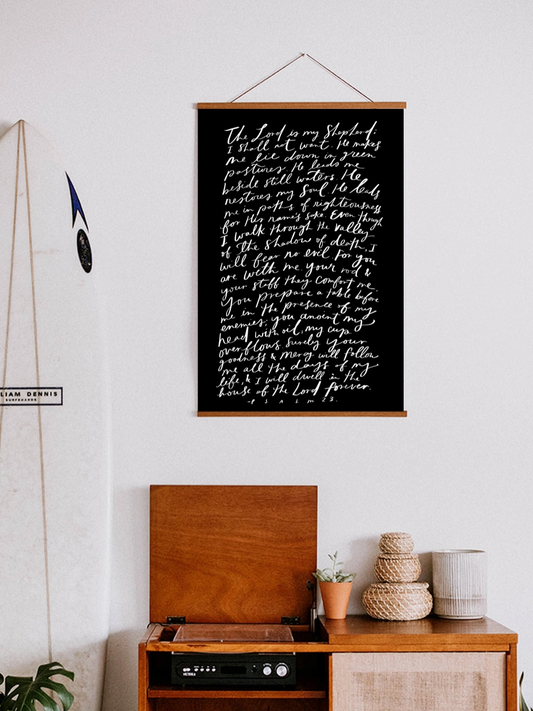 The Lord is my Shepherd;
I shall not want. He makes
me lie down in green
pastures. He leads me
beside still waters. He
restores my soul. He leads
me in paths of righteousness
for His name's sake. Even though
I walk through the valley
of the shadow of death, I
will fear no evil. For you
are with me. Your rod &
your staff they comfort me.
You prepare a table before
me in the presence of my
enemies; you anoint my
head with oil, my cup
overflows. Surely your
goodness & Mercy will follow
me all the days of my
life, & I will dwell in the
house of the Lord forever.
-PSALM 23.
LIAM DENNIS
SURFBOARDS
VICTROLA